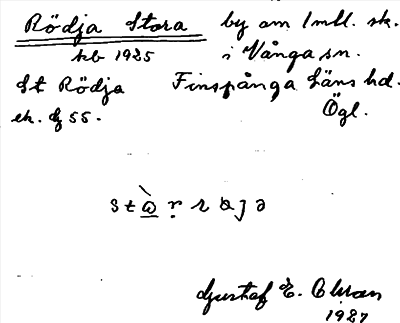 Rödja Stora by om 1 mtl. sk.
kb 1925 i Vånga sn.
St Rödja Finspånga Läns hd.
ek. bl 55. Ögl.
Gustaf E. Olsson
1927